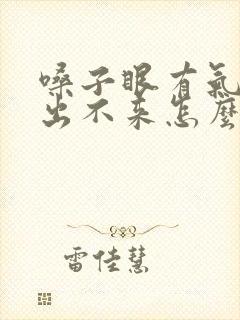 嗓子眼有氣
出不來怎麼
雷佳慧